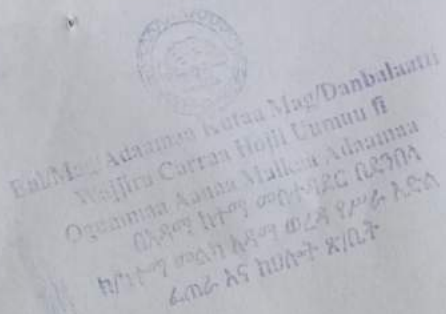 Bul/Mag Adaamaa Kutaa Mag/Danbalaatti
Waajjira Carraa Hojii Uumuu fi
Ogummaa Aanaa Malkaa Adaamaa
በአዳማ ከተማ መስተዳድር በደንበላ
ክ/ከተማ መልካ አዳማ ወረዳ የሥራ እድል
ፈጠራ እና ክህሎት ጽ/ቤት